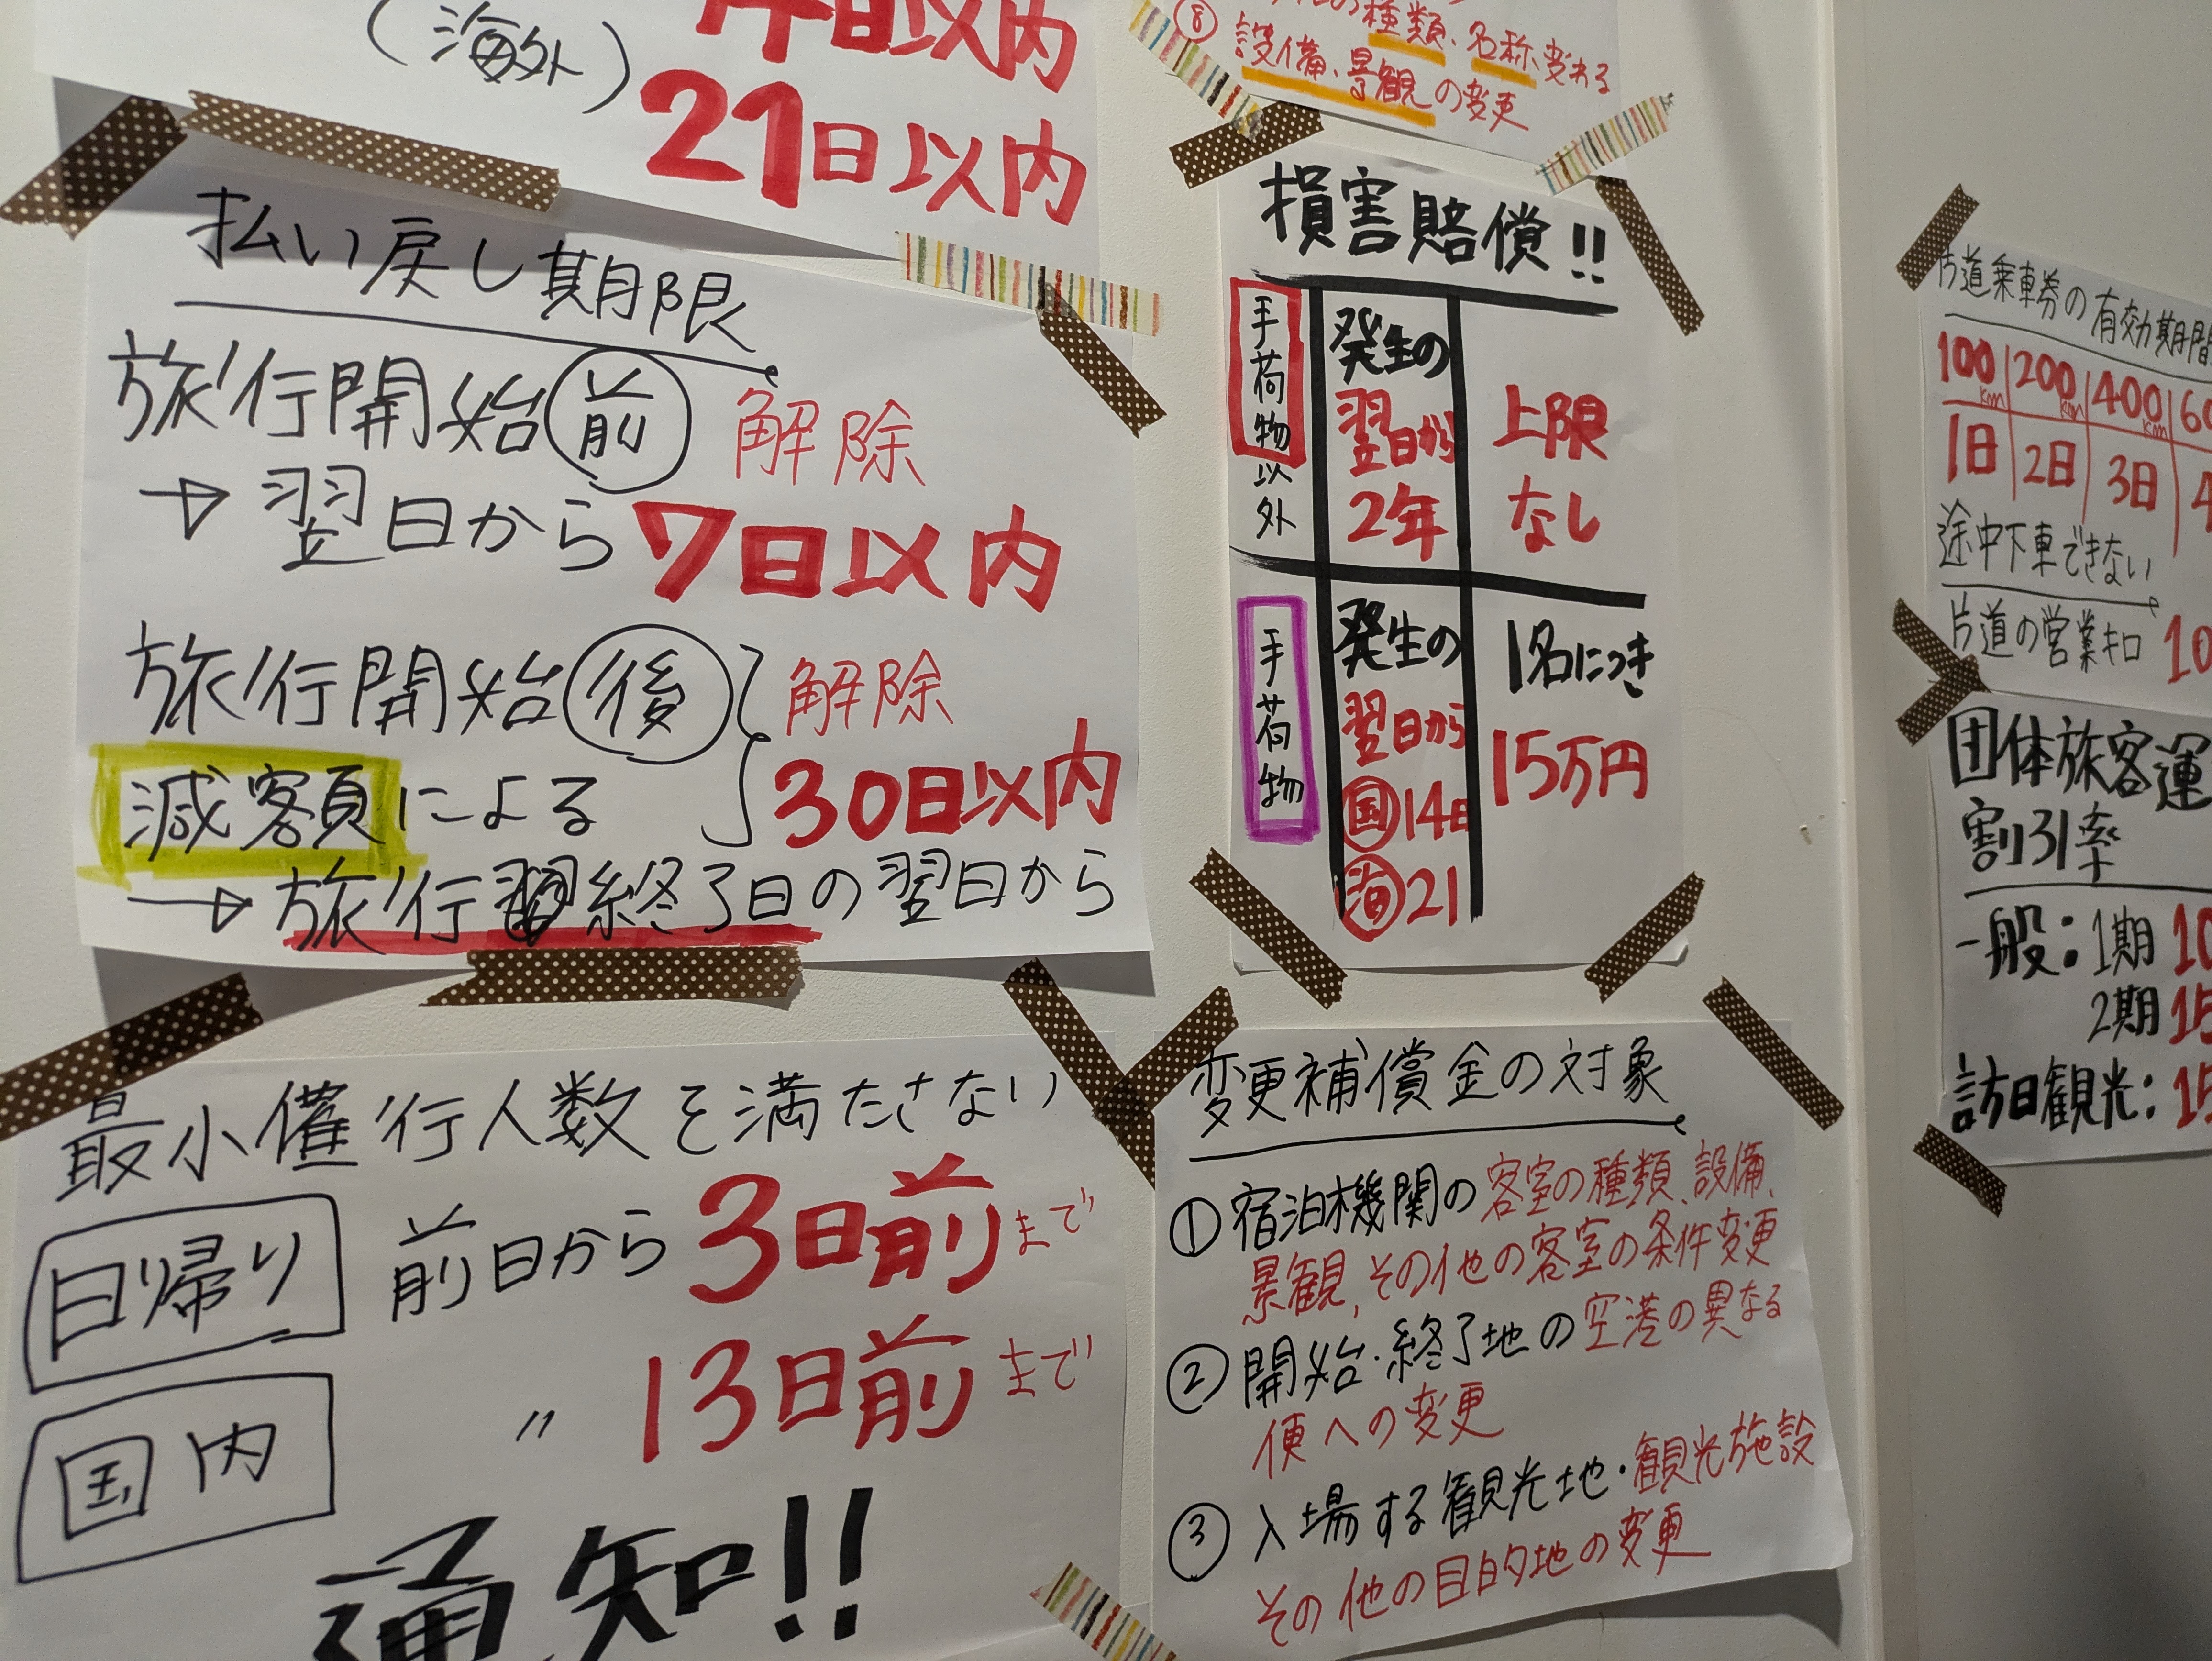 日以内
(海外)
21日以内
払い戻し期限
旅行開始前 解除
→翌日から7日以内
旅行開始後 解除
減客員による 30日以内
→旅行終了日の翌日から
最小催行人数を満たさない
日帰り 前日から3日前まで
国内 〃 13日前まで
通知!!
⑧
種類、名称変わる
設備、景観の変更
損害賠償!!
手荷物以外
発生の
翌日から
2年
上限
なし
手荷物
発生の
翌日から
国14日
海21
1名につき
15万円
変更補償金の対象
①宿泊機関の客室の種類、設備、
景観、その他の客室の条件変更
②開始・終了地の空港の異なる
便への変更
③入場する観光地・観光施設
その他の目的地の変更
片道乗車券の有効期間
100km 200km 400km
1日 2日 3日
途中下車できない
片道の営業キロ 10
団体旅客運
割引率
一般:1期 10
2期 15
訪日観光:15